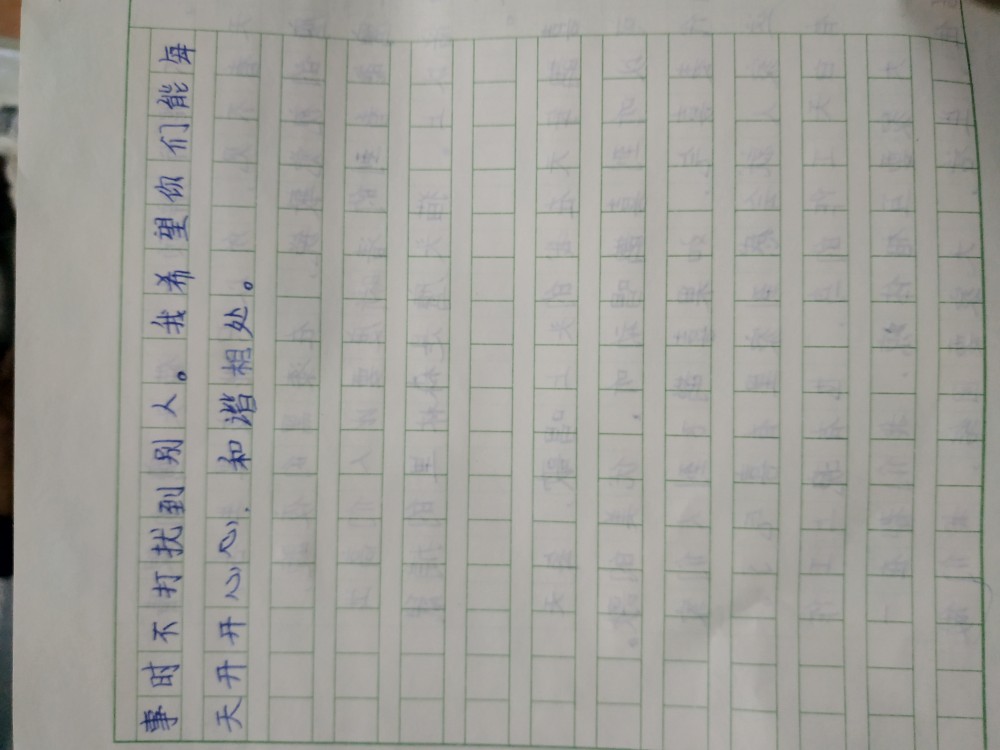 事时不打扰到别人。我希望你们能每
天开开心心.和谐相处。